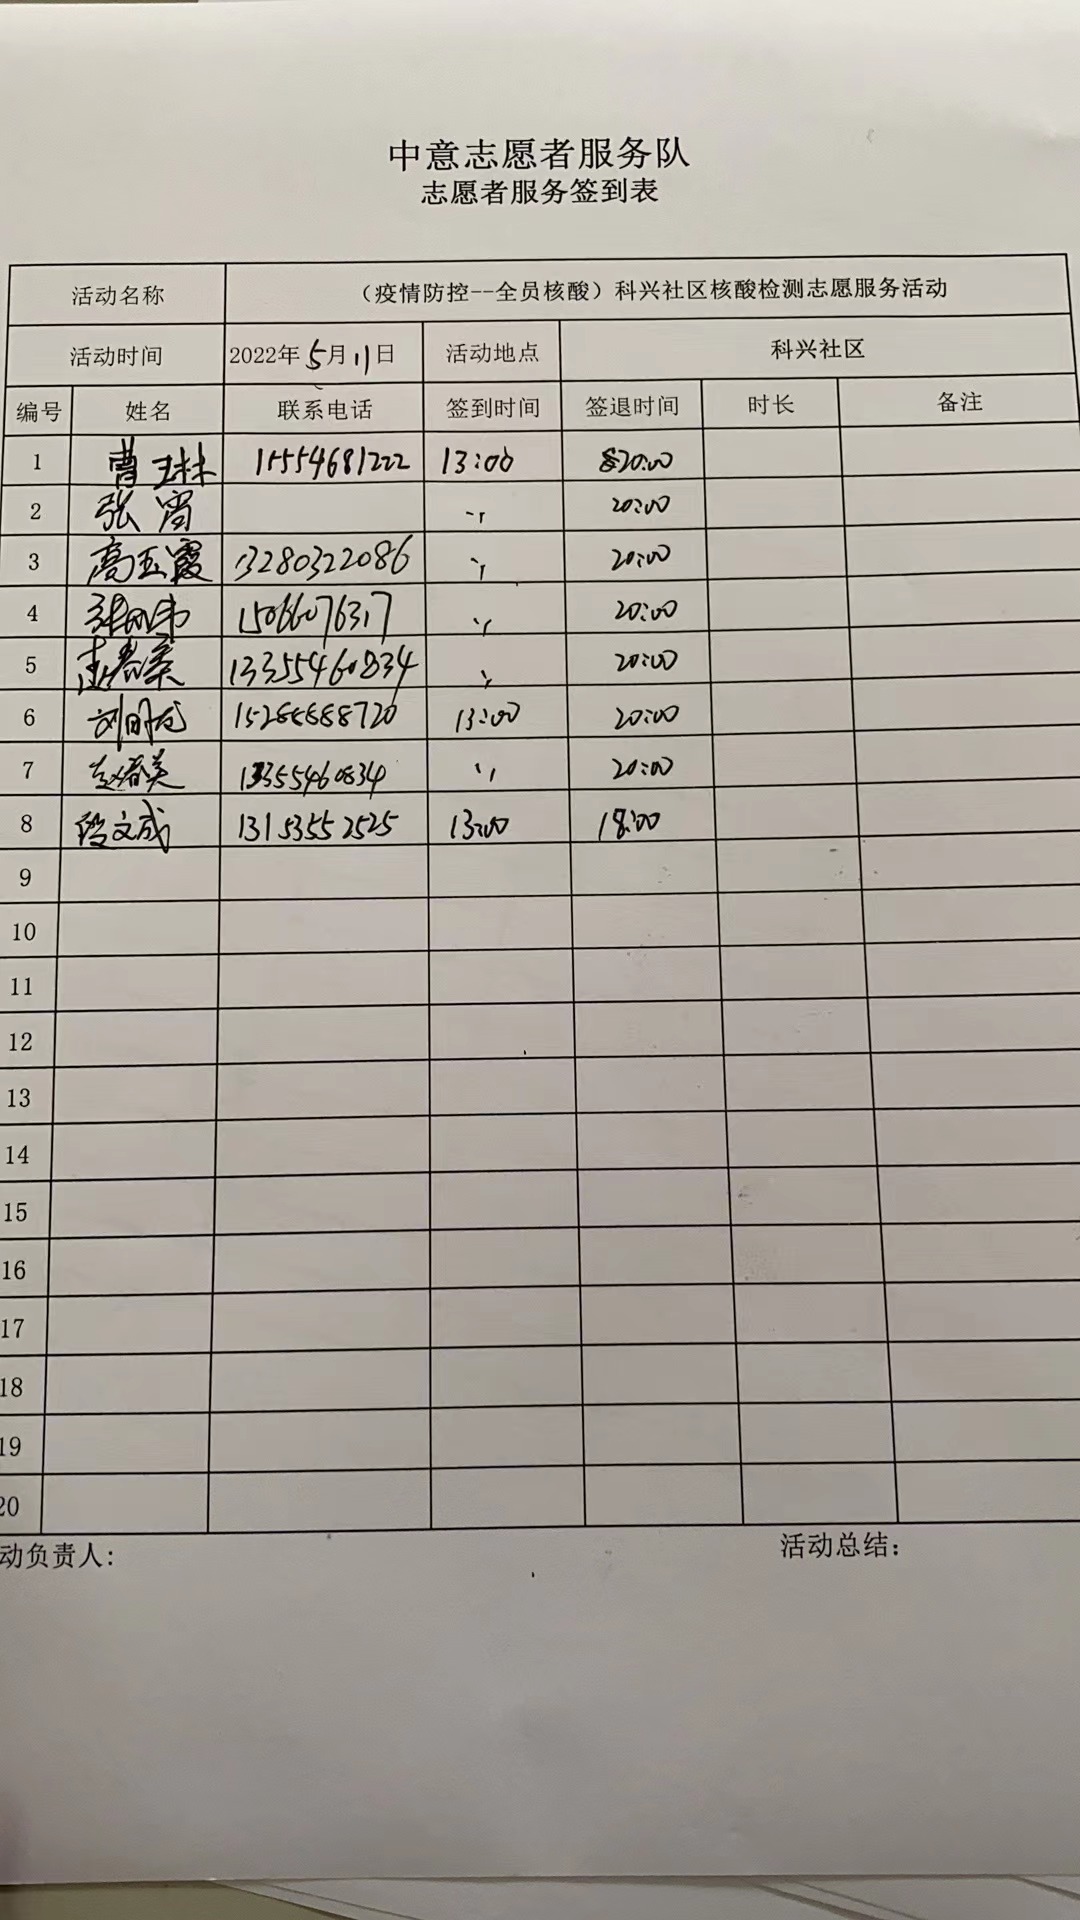 中意志愿者服务队
志愿者服务签到表
活动名称 （疫情防控--全员核酸）科兴社区核酸检测志愿服务活动
活动时间 2022年5月11日 活动地点 科兴社区
编号 姓名 联系电话 签到时间 签退时间 时长 备注
1 曹玉林 15554681222 13:00 20:00
2 张宵 20:00
3 高玉霞 13280322086 20:00
4 15066076317 20:00
5 13355460834 20:00
6 13:00 20:00
7 赵春美 13355460834 20:00
8 段文成 13153552525 13:00 18:00
9
10
11
12
13
14
15
16
17
18
19
20
动负责人: 活动总结: